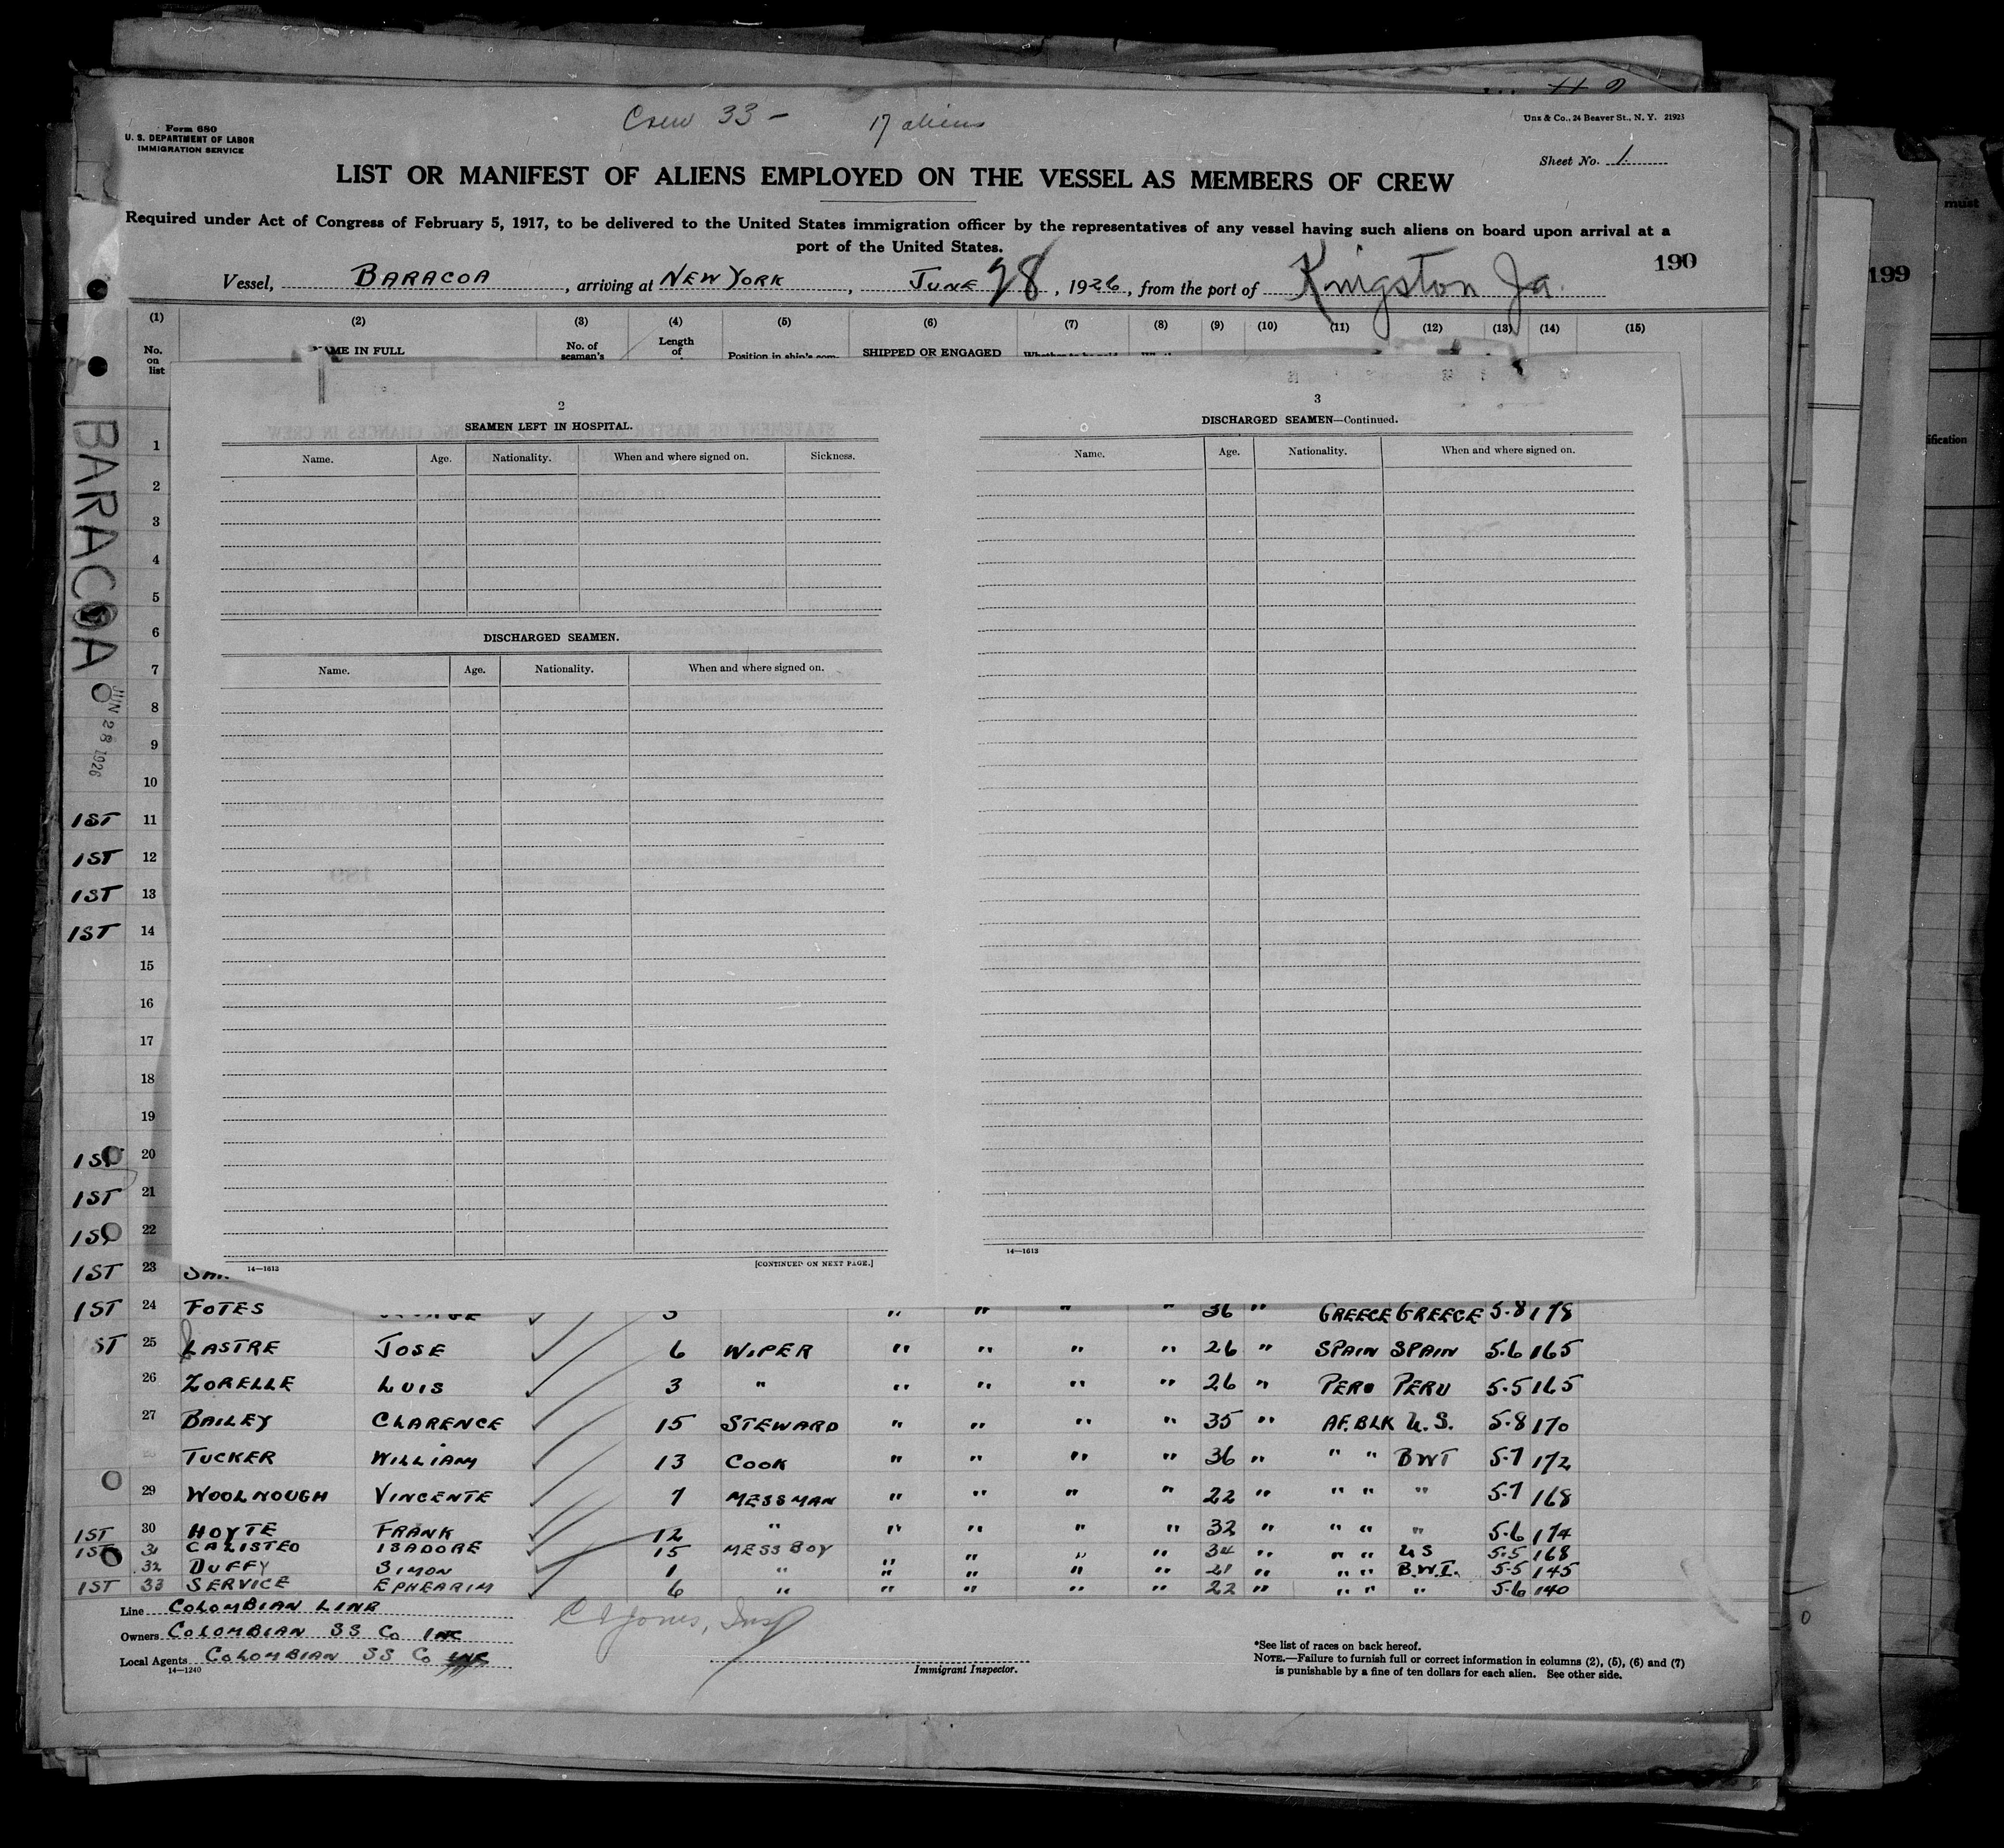 Crew 33 - 17 aliens
Form 680
U. S. DEPARTMENT OF LABOR
IMMIGRATION SERVICE
Unz & Co., 24 Beaver St., N. Y. 21923
Sheet No. 1
LIST OR MANIFEST OF ALIENS EMPLOYED ON THE VESSEL AS MEMBERS OF CREW
Required under Act of Congress of February 5, 1917, to be delivered to the United States immigration officer by the representatives of any vessel having such aliens on board upon arrival at a
port of the United States.
190
199
must
Vessel, BARACOA, arriving at NEW YORK, JUNE 28, 1926, from the port of Kingston Ja.
(1) (2) (3) (4) (5) (6) (7) (8) (9) (10) (11) (12) (13) (14) (15)
No. on list
NAME IN FULL
No. of seaman's
Length of
Position in ship's com-
SHIPPED OR ENGAGED
BARACOA
JUN 28 1926
2
SEAMEN LEFT IN HOSPITAL.
Name. Age. Nationality. When and where signed on. Sickness.
DISCHARGED SEAMEN.
Name. Age. Nationality. When and where signed on.
14—1613
[CONTINUED ON NEXT PAGE.]
3
DISCHARGED SEAMEN—Continued.
Name. Age. Nationality. When and where signed on.
14—1613
1
2
3
4
5
6
7
8
9
10
1ST 11
1ST 12
1ST 13
1ST 14
15
16
17
18
19
1ST 20
1ST 21
1ST 22
1ST 23
1ST 24 FOTES 3 " " " " 36 " GREECE GREECE 5-8 178
1ST 25 LASTRE JOSE 6 WIPER " " " " 26 " SPAIN SPAIN 5-6 165
26 ZORELLE LUIS 3 " " " " " 26 " PERU PERU 5-5 165
27 BAILEY CLARENCE 15 STEWARD " " " " 35 " AF. BLK U.S. 5-8 170
TUCKER WILLIAM 13 COOK " " " " 36 " " " BWI 5-7 172
29 WOOLNOUGH VINCENTE 7 MESSMAN " " " " 22 " " " " 5-7 168
1ST 30 HOYTE FRANK 12 " " " " " 32 " " " " 5-6 174
1ST 31 CALISTEO ISADORE 15 MESS BOY " " " " 34 " " " US 5-5 168
32 DUFFY SIMON 1 " " " " " 21 " " " B.W.I. 5-5 145
1ST 33 SERVICE EPHEARIM 6 " " " " " 22 " " " " 5-6 140
Line COLOMBIAN LINE
Owners COLOMBIAN SS Co INC
Local Agents COLOMBIAN SS Co INC
14—1240
Jones, Insp
Immigrant Inspector.
*See list of races on back hereof.
NOTE.—Failure to furnish full or correct information in columns (2), (5), (6) and (7)
is punishable by a fine of ten dollars for each alien. See other side.